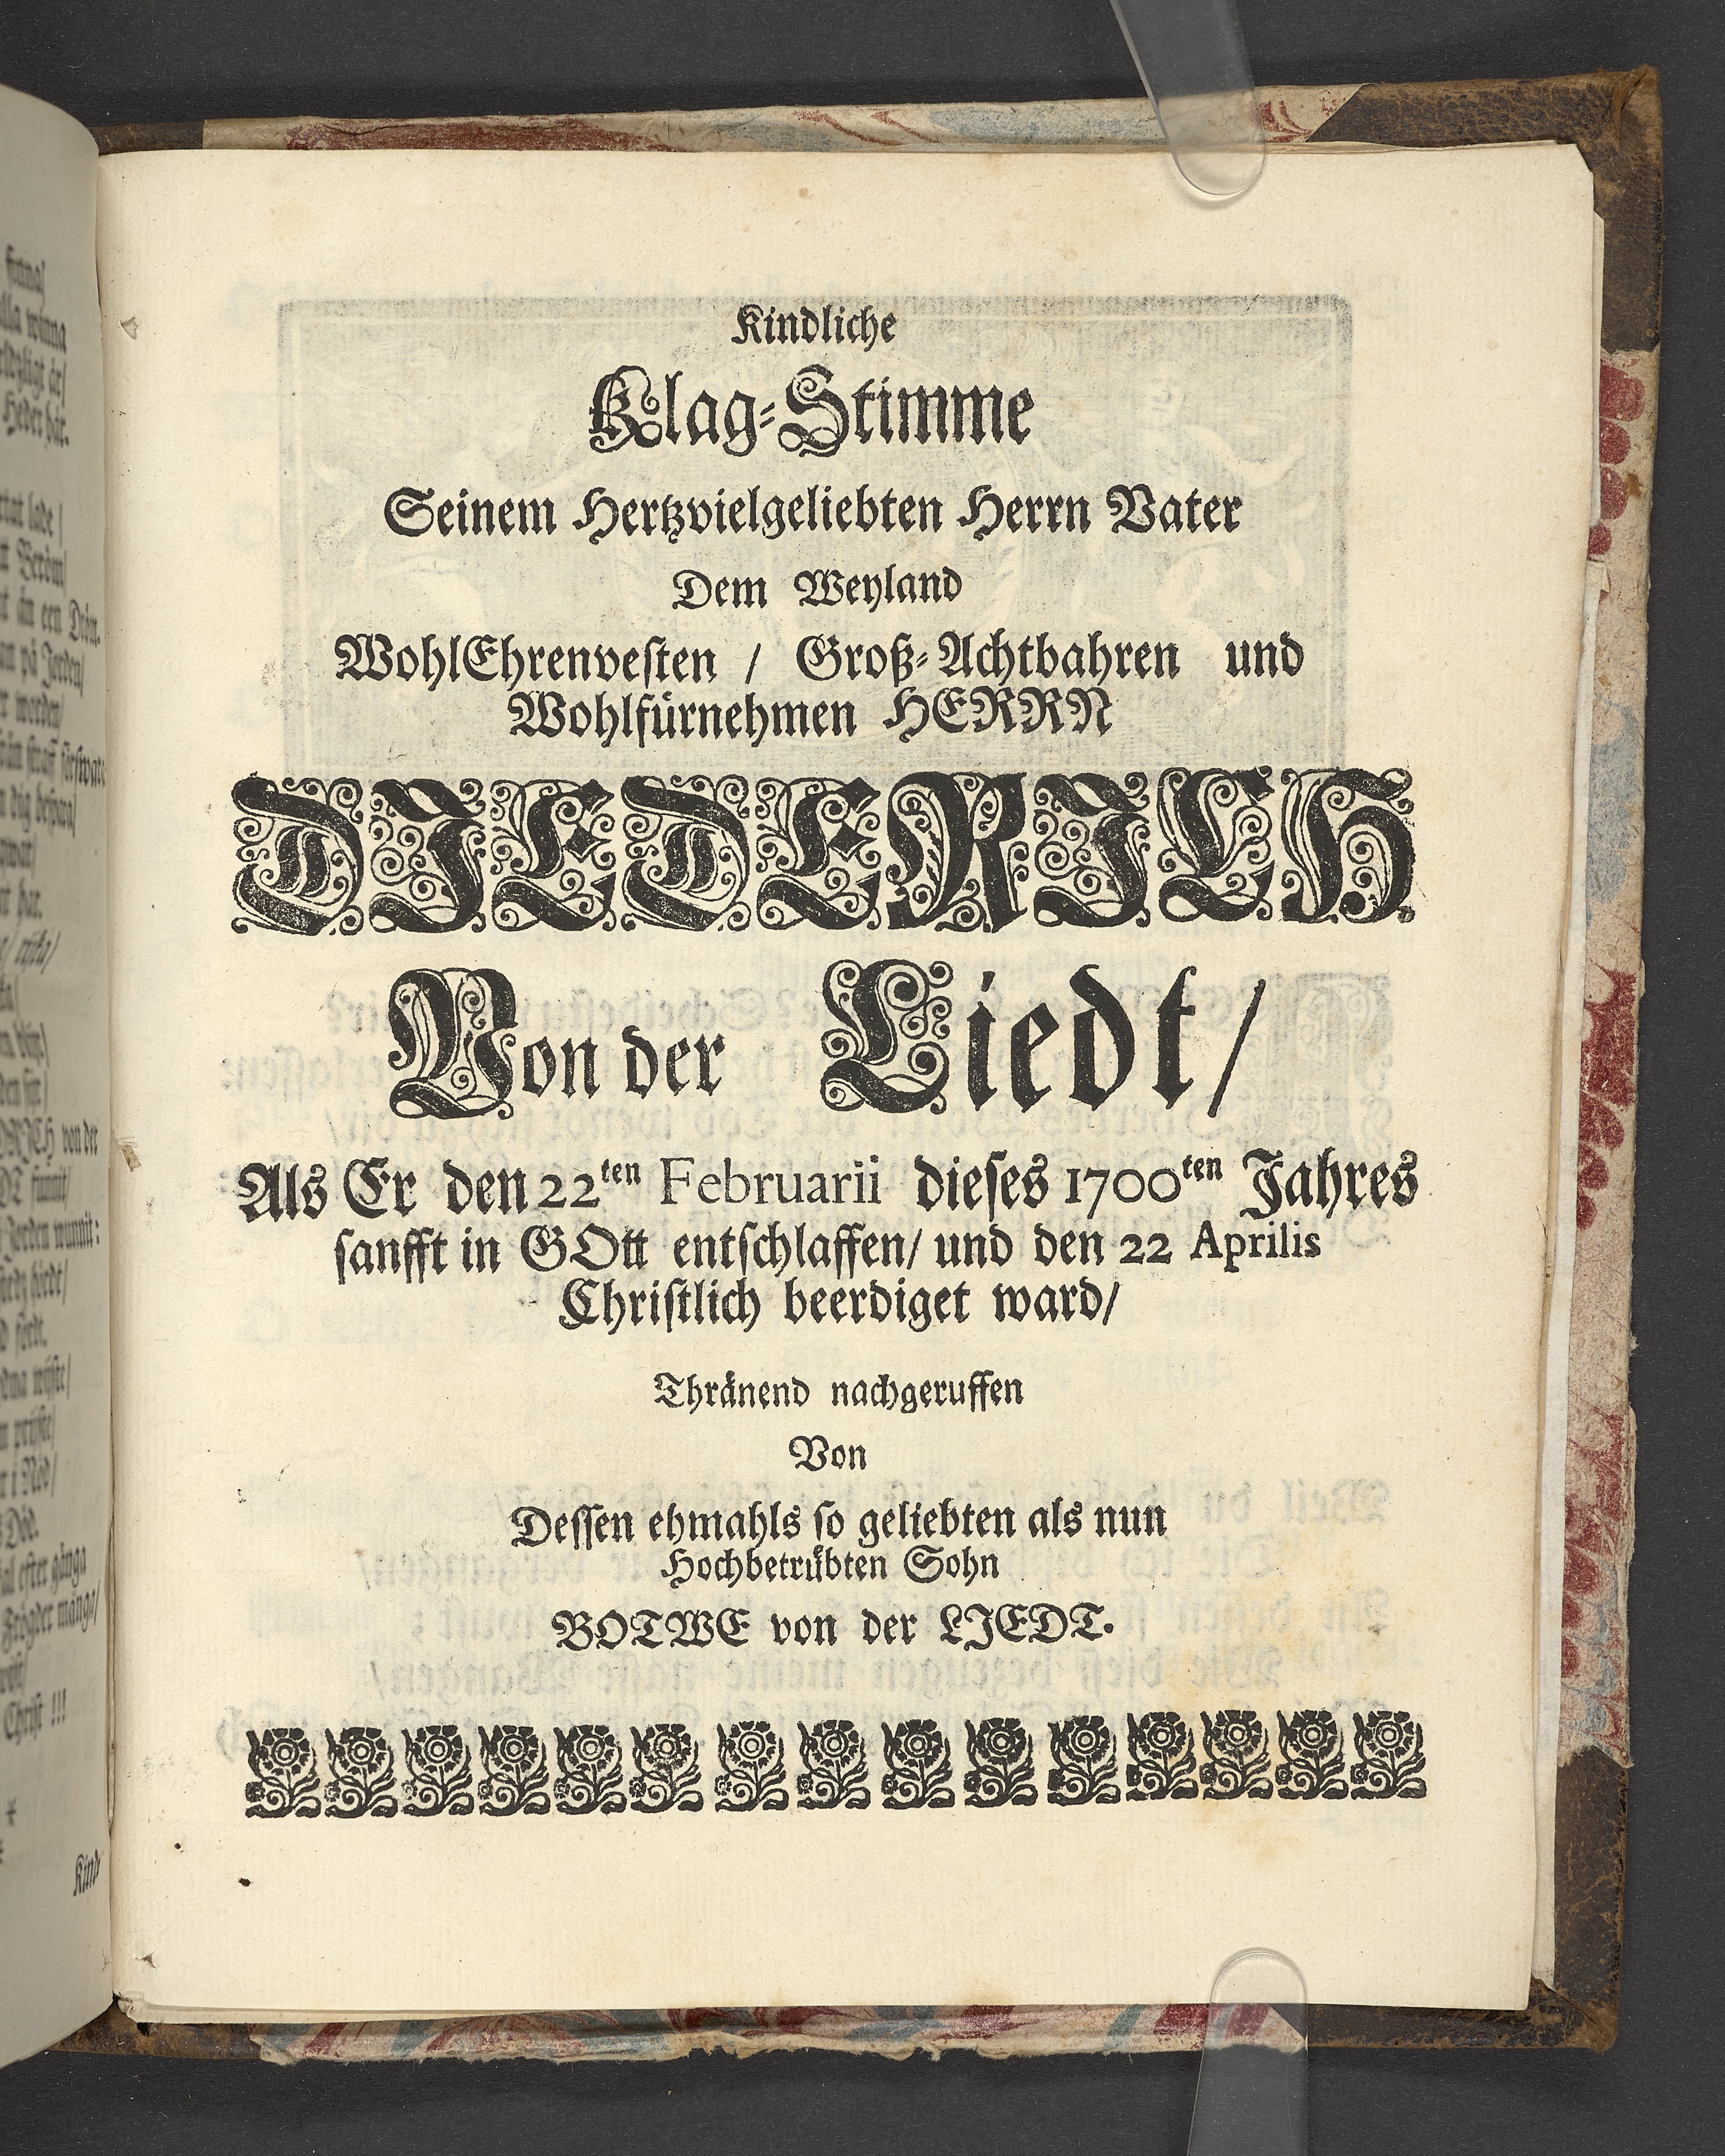 Kindliche
Klag-Stimme
Seinem Hertzvielgeliebten Herrn Vater
Dem Weyland
WohlEhrenvesten / Groß-Achtbahren und
Wohlfürnehmen HERRN
DIEDERICH
Von der Liedt /
Als Er den 22ten Februarii dieses 1700ten Jahres
sanfft in GOtt entschlaffen / und den 22 Aprilis
Christlich beerdiget ward /
Thränend nachgeruffen
Von
Dessen ehmahls so geliebten als nun
Hochbetrübten Sohn
BOTWE von der LIEDT.